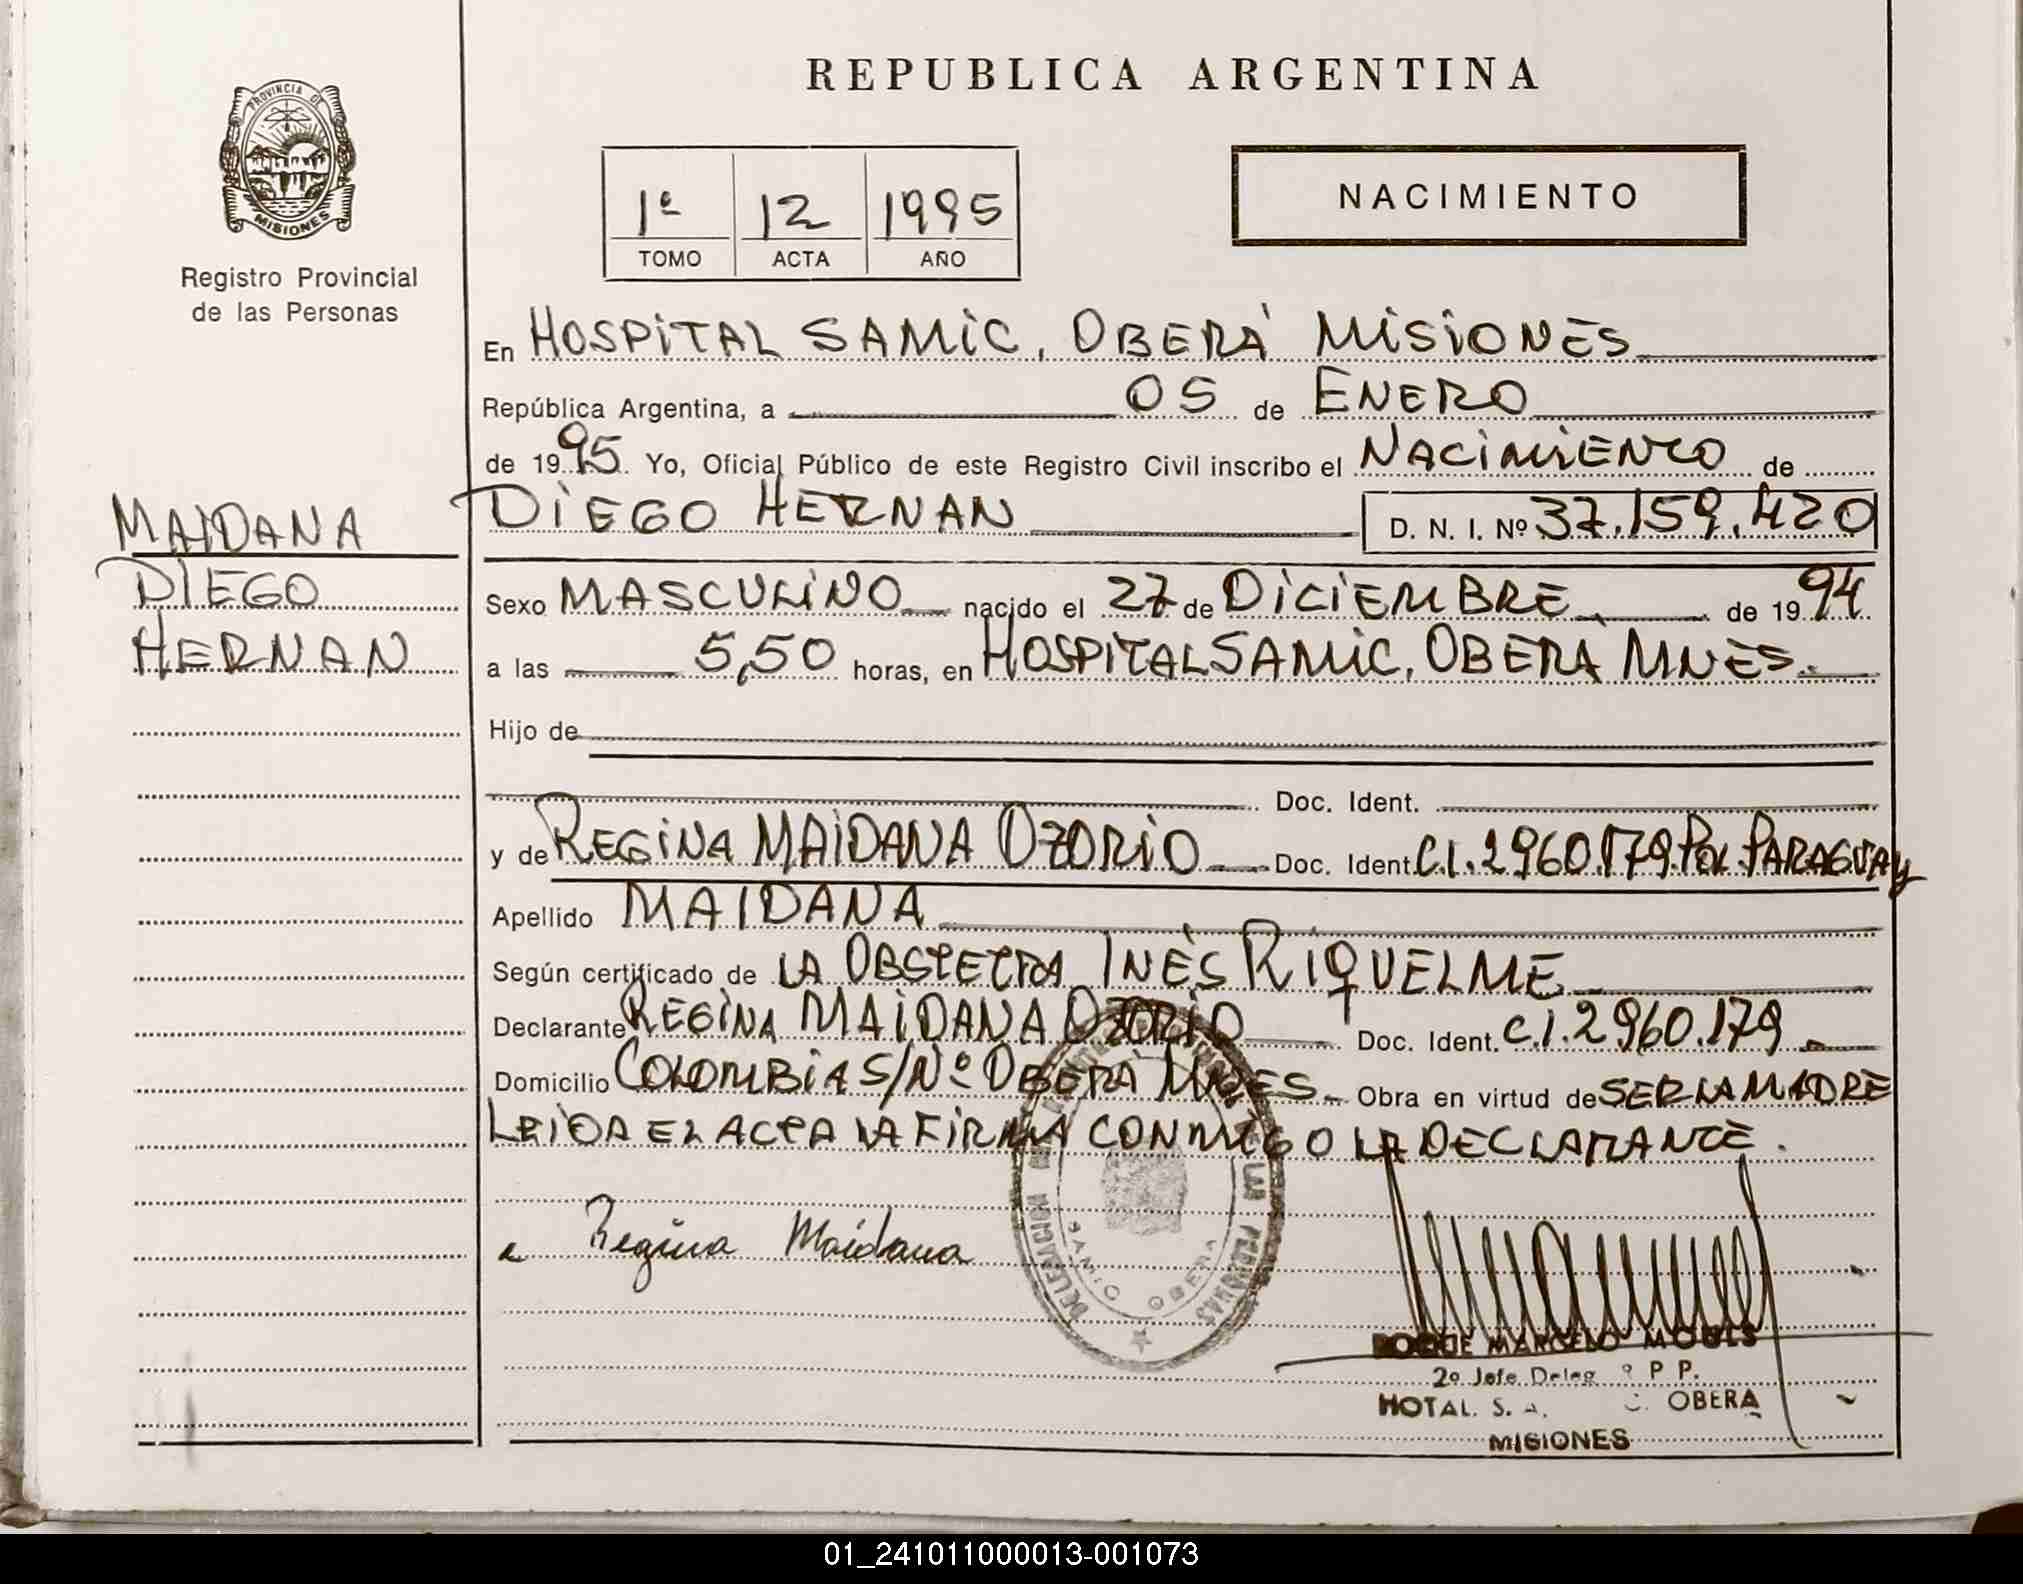 REPUBLICA ARGENTINA
PROVINCIA DE
MISIONES
Registro Provincial
de las Personas
1º 12 1995
TOMO ACTA AÑO
NACIMIENTO
En HOSPITAL SAMIC, OBERÁ MISIONES
República Argentina, a 05 de ENERO
de 1995 Yo, Oficial Público de este Registro Civil inscribo el NACIMIENTO de
DIEGO HERNAN D. N. I. Nº 37.159.420
MAIDANA
DIEGO
HERNAN
Sexo MASCULINO nacido el 27 de DICIEMBRE de 1994
a las 5,50 horas, en HOSPITAL SAMIC, OBERÁ MNES.
Hijo de
Doc. Ident.
y de REGINA MAIDANA OZORIO Doc. Ident. C.I. 2960.179 Pol. PARAGUAY
Apellido MAIDANA
Según certificado de LA OBSTETRA INÉS RIQUELME
Declarante REGINA MAIDANA OZORIO Doc. Ident. C.I. 2960.179
Domicilio COLOMBIA S/Nº OBERÁ MNES. Obra en virtud de SER LA MADRE
LEIDA EL ACTA LA FIRMA CONMIGO LA DECLARANTE.
Regina Maidana
DELEGACION PERSONAS
SAMIC OBERA
ROQUE MARCELO
2º Jefe Deleg. P P.
HOTAL. S. A. C. OBERA
MISIONES
01_241011000013-001073